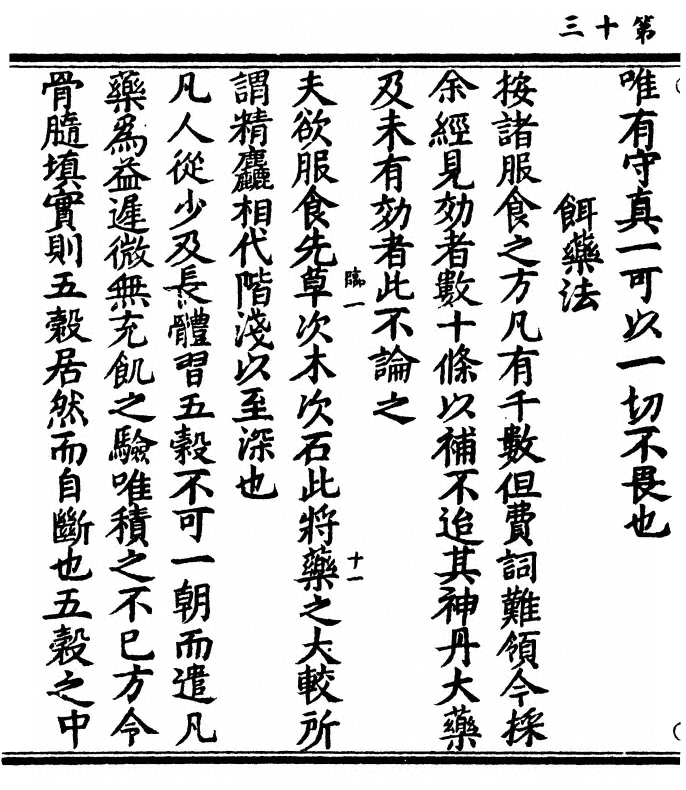 第十三
唯有守真一可以一切不畏也
餌藥法
按諸服食之方凡有千數但費詞難領今採
余經見効者數十條以補不迨其神丹大藥
及未有効者此不論之
臨一
十一
夫欲服食先草次木次石此將藥之大較所
謂精麤相代階淺以至深也
凡人從少及長體習五穀不可一朝而遣凡
藥為益遲微無充飢之驗唯積之不已方令
骨髓填實則五穀居然而自斷也五穀之中